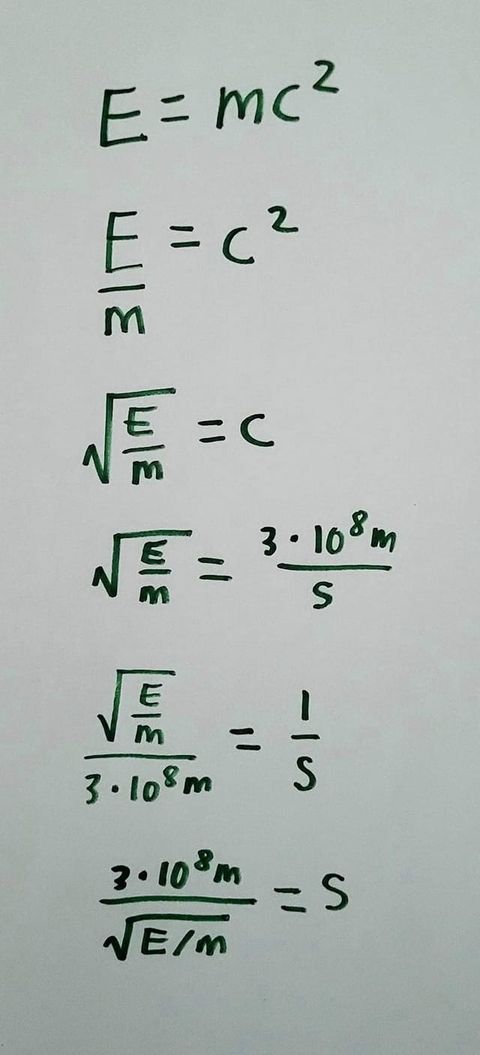 E = mc²
E/m = c²
√(E/m) = c
√(E/m) = 3·10⁸m/s
√(E/m)/3·10⁸m = 1/s
3·10⁸m/√(E/m) = s